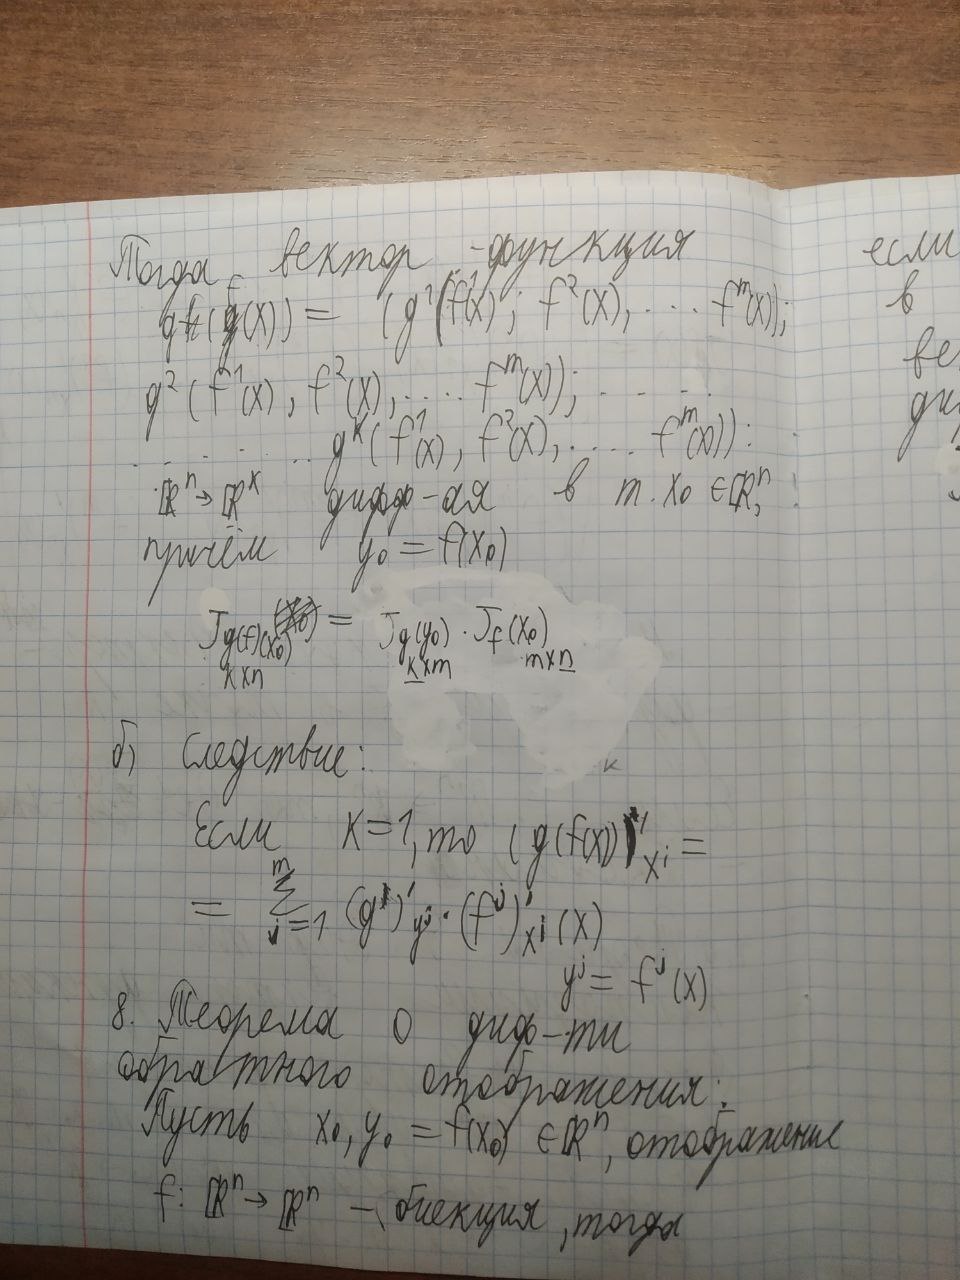 Тогда вектор-функция
g(f(x)) = (g¹(f¹(x); f²(x), ... fᵐ(x));
g²(f¹(x), f²(x), .... fᵐ(x)); ....
..... gᵏ(f¹(x), f²(x), .... fᵐ(x)):
ℝⁿ→ℝᵏ дифф-ая в т. x₀ ∈ ℝⁿ,
причём y₀ = f(x₀)
J g(f)(x₀) = J g(y₀) · J f(x₀)
k×n k×m m×n
б) Следствие:
к
Если K=1, то (g(f(x)))'xⁱ =
= Σ m j=1 (g¹)'yʲ · (fʲ)'xⁱ (x)
yʲ = fʲ(x)
8. Теорема о диф-ти
обратного отображения:
Пусть x₀, y₀ = f(x₀) ∈ ℝⁿ, отображение
f: ℝⁿ→ℝⁿ – биекция, тогда
если
в